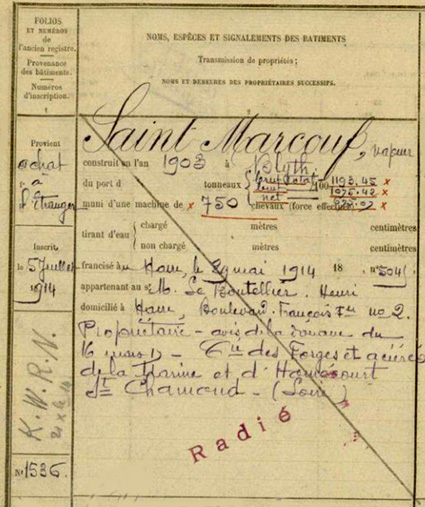 FOLIOS
ET NUMÉROS
de
l'ancien registre.
Provenance
des bâtiments.
Numéros
d'inscription.
1
NOMS, ESPÈCES ET SIGNALEMENTS DES BATIMENTS
Transmission de propriétés;
NOMS ET DEMEURES DES PROPRIÉTAIRES SUCCESSIFS.
2
Provient
achat
à
l'Étranger
Inscrit
le 5 Juillet
1914
K.W.R.N.
No 1536.
Saint Marcouf, vapeur
construit en l'an 1903 à Blyth
du port d tonneaux brut total 1193.45 x
100
net
muni d'une machine de x 750 chevaux (force effective) x
tirant d'eau { chargé mètres centimètres
non chargé mètres centimètres
francisé au Havre, le mai 1914 18 no
appartenant au sr M. Le Boutellier. Henri
domicilié à Havre, Boulevard François Ier no 2.
Propriétaire - avis de la douane du
16 mars - Cie des Forges et aciéries
de la Marine et d'Homécourt
St Chamond - (Loire)
Radié